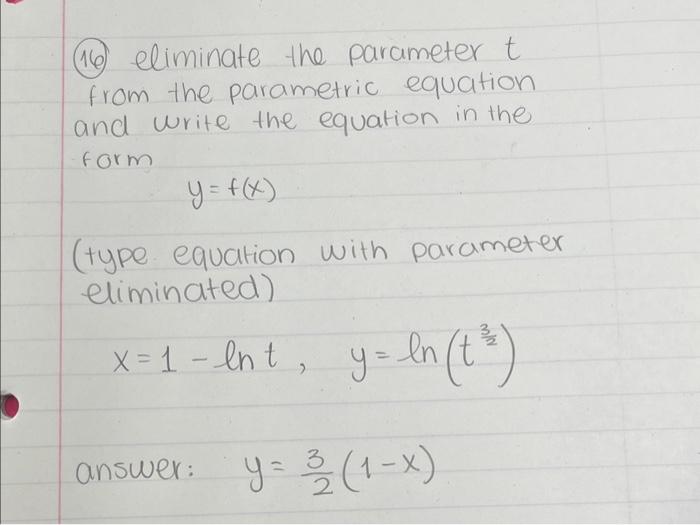 (16) eliminate the parameter t
from the parametric equation
and write the equation in the
form
y = f(x)
(type equation with parameter
eliminated)
x = 1 - ln t, y = ln (t^{3/2})
answer: y = 3/2 (1-x)